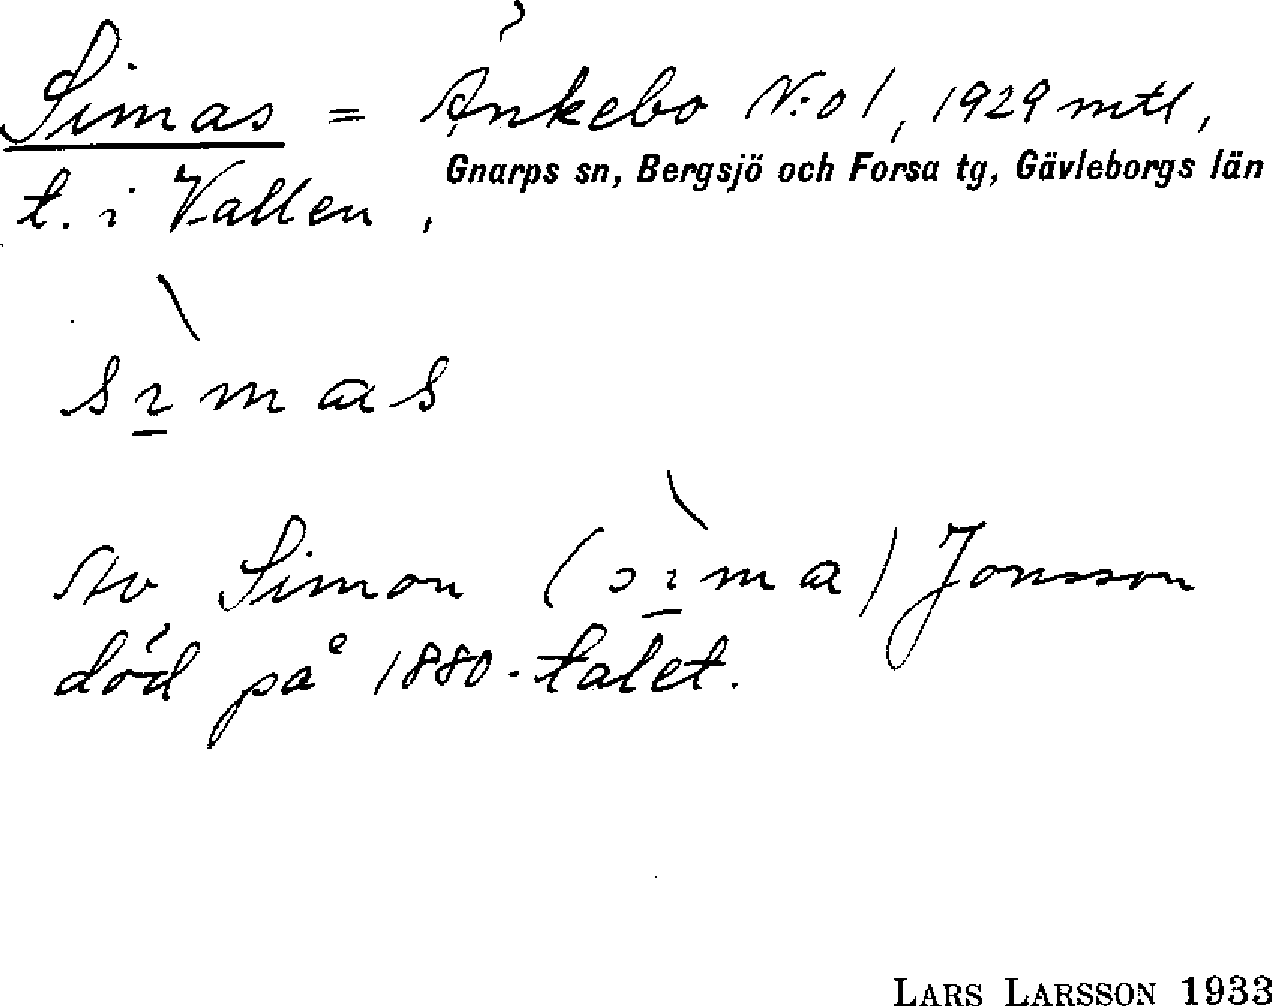 Simas = Änkebo N:o 1, 1929 mtl,
Gnarps sn, Bergsjö och Forsa tg, Gävleborgs län
t. i Vallen,
sìmas
Av Simon (sìma) Jonsson
död på 1880-talet.
LARS LARSSON 1933